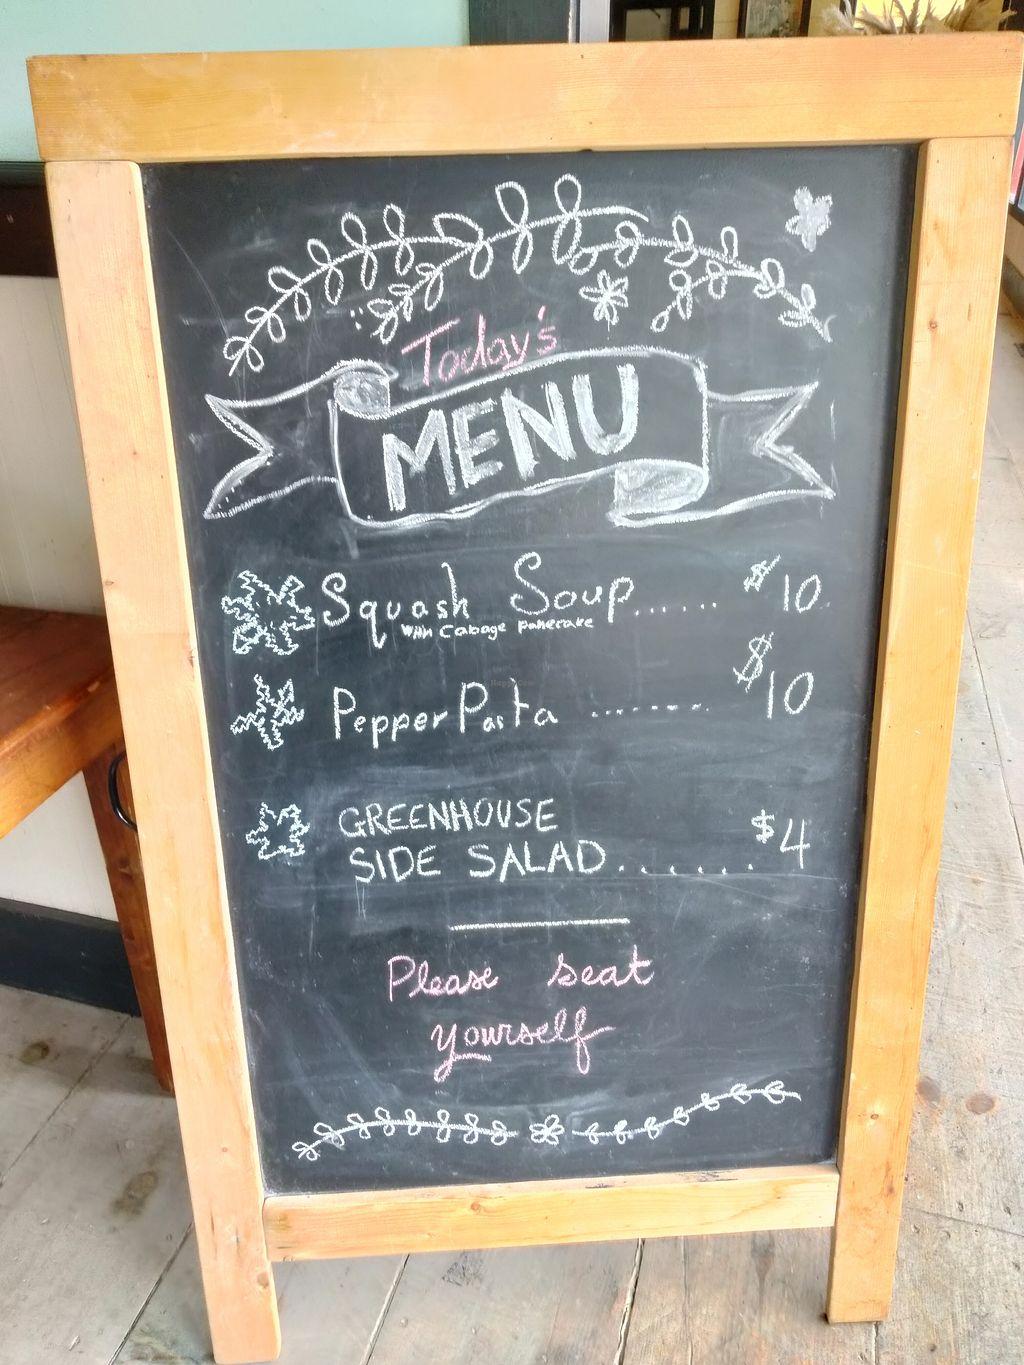 Today's
MENU
Squash Soup...... $10
With Cabage Panecake
Pepper Pasta ........ $10
GREENHOUSE
SIDE SALAD...... $4
Please seat
yourself